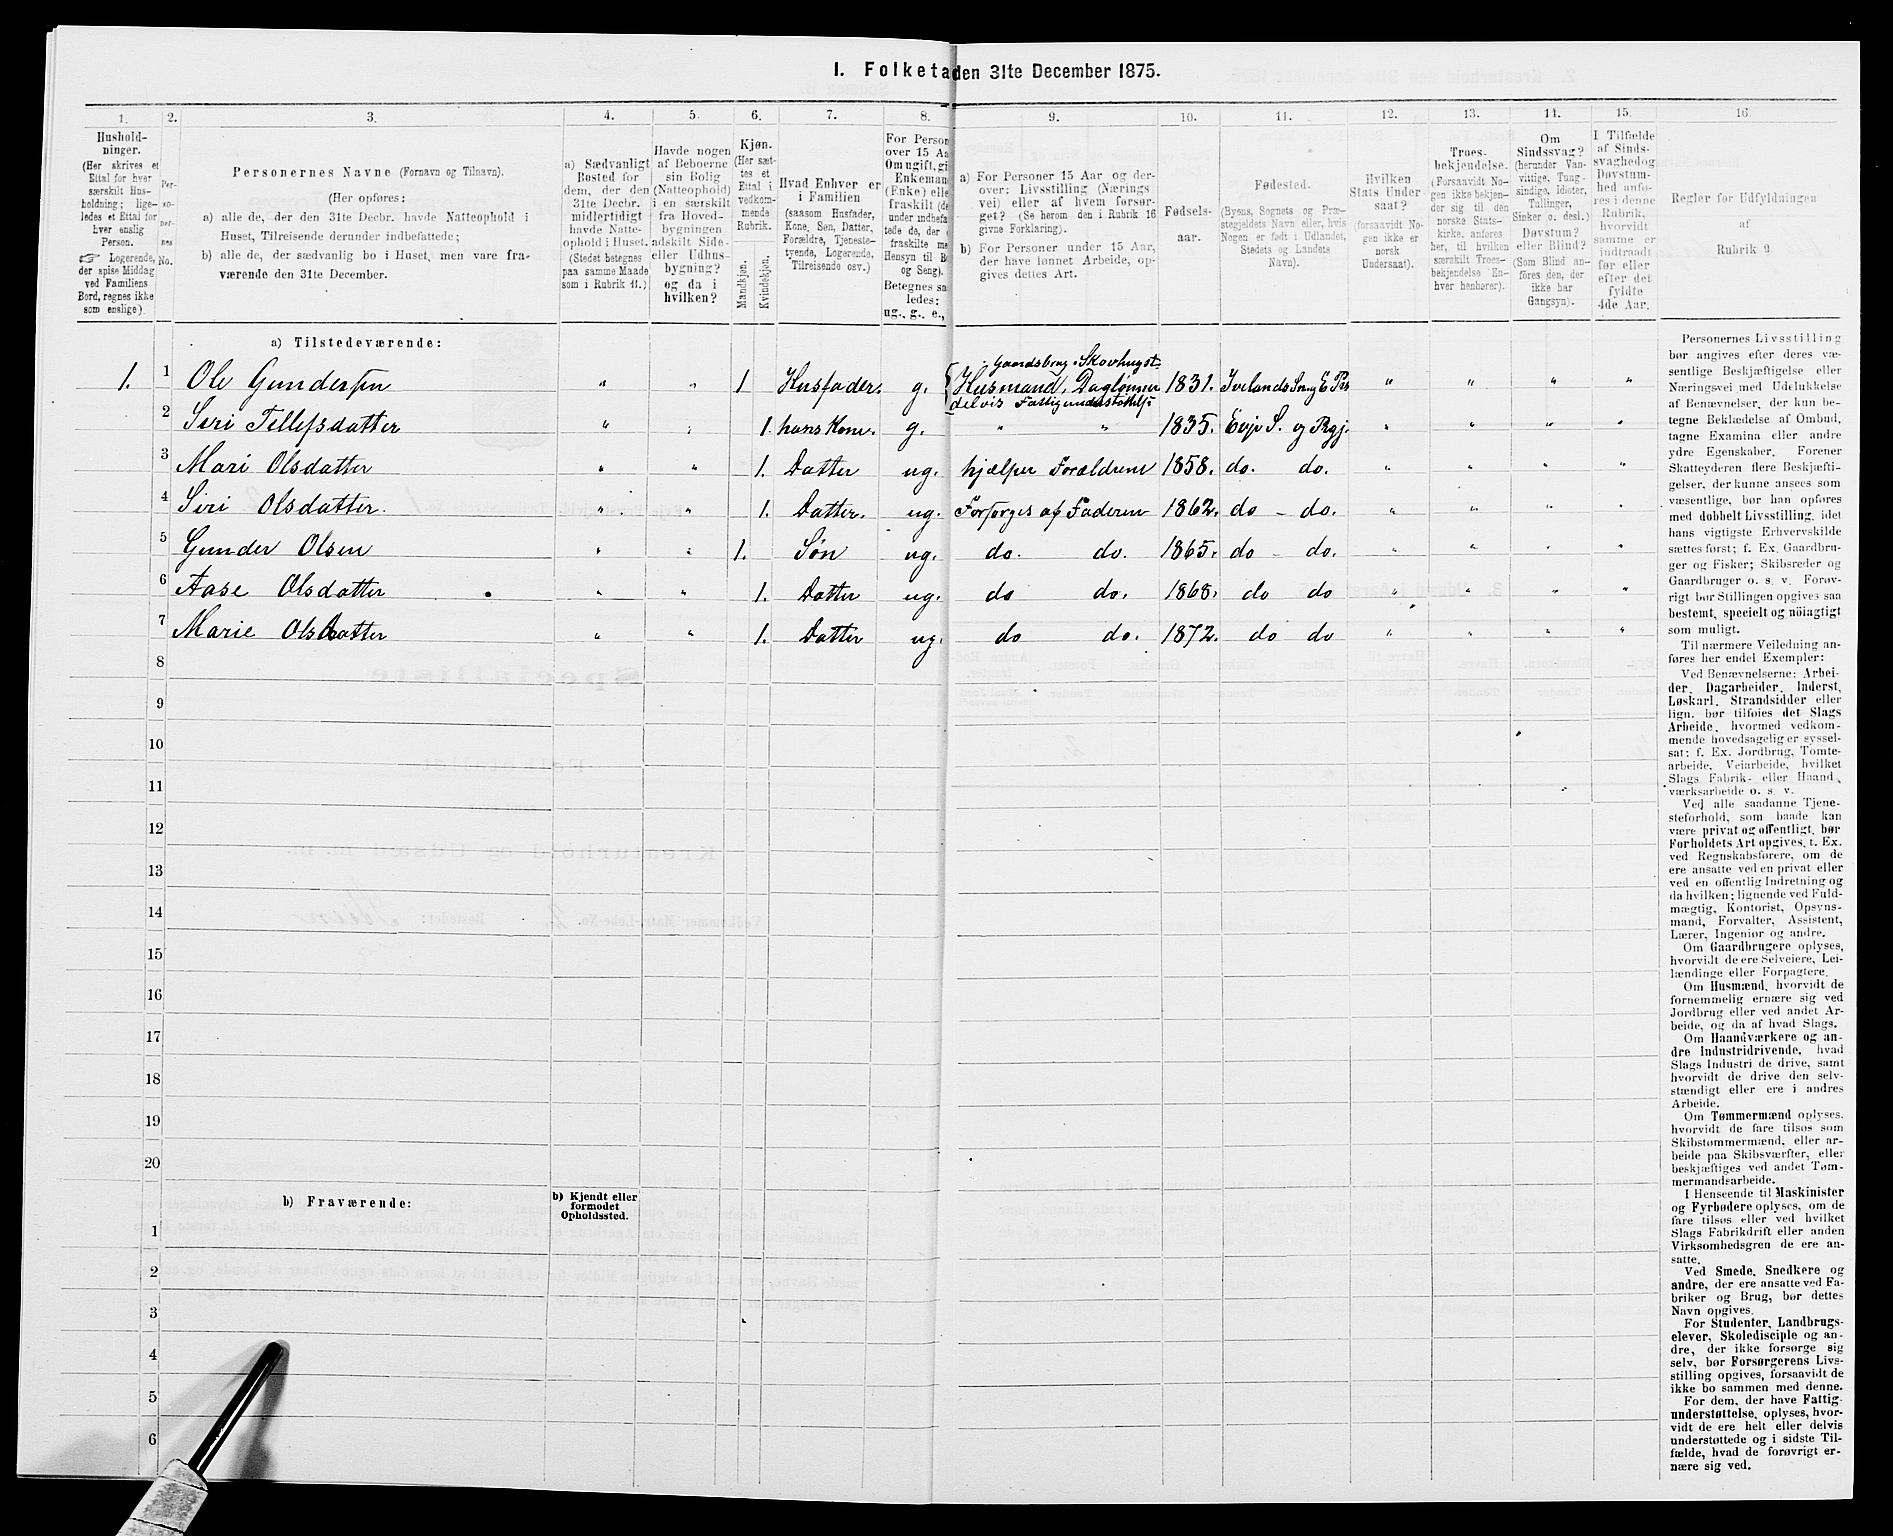 I. Folketa den 31te December 1875.
1. 2. 3. 4. 5. 6. 7. 8. 9. 10. 11. 12. 13. 14. 15. 16.
Hushold-
ninger.
(Her skrives et
Ettal for hver
særskilt Hus-
holdning; lige-
ledes et Ettal for
hver enslig
Person.
☞ Logerende,
der spise Middag
ved Familiens
Bord, regnes ikke
som enslige)
Per-
so-
per-
nes
No.
Personernes Navne (Fornavn og Tilnavn).
(Her opføres:
a) alle de, der den 31te Decbr. havde Natteophold i
Huset, Tilreisende derunder indbefattede;
b) alle de, der sædvanlig bo i Huset, men vare fra-
værende den 31te December.
a) Sædvanligt
Bosted for
dem, der den
31te Decbr.
midlertidigt
havde Natte-
ophold i Huset.
(Stedet betegnes
paa samme Maade
som i Rubrik 11.)
Havde nogen
af Beboerne
sin Bolig
(Natteophold)
i en særskilt
fra Hoved-
bygningen
adskilt Side-
eller Udhus-
bygning?
og da i
hvilken?
Kjøn.
(Her sæt-
tes et
Ettal i
vedkom-
mende
Rubrik.
Mandkjøn.
Kvindekjøn.
Hvad Enhver er
i Familien
(saasom Husfader,
Kone, Søn, Datter,
Forældre, Tjeneste-
tyende, Logerende,
Tilreisende osv.)
For Person
over 15 Aa
Om ugift, gi
Enkeman
(Enke) elle
fraskilt (de
under indbefa
tede de, der
fraskilte me
Hensyn til B
og Seng).
Betegnes saa
ledes:
ug., g., e.,
a) For Personer 15 Aar og der-
over: Livsstilling (Nærings
vei) eller af hvem forsør-
get? (Se herom den i Rubrik 16
givne Forklaring).
b) For Personer under 15 Aar,
der have lønnet Arbeide, op-
gives dettes Art.
Fødsels-
aar.
Fødested.
(Byens, Sognets og Præ-
stegjeldets Navn eller, hvis
Nogen er født i Udlandet,
Stedets og Landets
Navn).
Hvilken
Stats Under-
saat?
(forsaavidt No-
gen ikke er
norsk
Undersaat).
Troes-
bekjendelse.
(Forsaavidt No-
gen ikke bekjen-
der sig til den
norske Stats-
kirke, anføres
her, til hvilken
særskilt Troes-
bekjendelse En-
hver henhører).
Om
Sindssvag?
(herunder Van-
vittige, Tung-
sindige, Idioter,
Tullinger,
Sinker o. desl.)
Døvstum?
eller Blind?
(Som Blind an-
føres den, der
ikke har
Gangsyn).
I Tilfælde
af Sinds-
svaghed og
Døvstum-
hed anfø-
res i denne
Rubrik,
hvorvidt
samme er
indtraadt
før eller
efter det
fyldte
4de Aar.
Regler for Udfyldningen
af
Rubrik 9.
a) Tilstedeværende:
Gaardsbrug, Skovhugst
1. 1 Ole Gundersen " " 1 Husfader. g. Husmand, Daglønner 1831. Ivelands Sogn, E. Pr.
delvis Fattigunderstøttelse
2 Siri Tellefsdatter " " 1. hans Kone. g. " " 1835. Evje S. og Prgj. " " " "
3 Mari Olsdatter " " 1. Datter ug. hjælper Forældrene 1858. do. do. " " " "
4 Siri Olsdatter. " " 1. Datter. ug. Forsørges af Faderen 1862. do - do. " " " "
5 Gunder Olsen " " 1. Søn ug. do. do. 1865. do - do. " " " "
6 Aase Olsdatter " " 1. Datter ug. do do. 1868. do do " " " "
7 Marie Olsdatter " " 1. Datter ug. do do. 1872. do do " " " "
8
9
10
11
12
13
14
15
16
17
18
19
20
b) Fraværende:
b) Kjendt eller
formodet
Opholdssted.
1
2
3
4
5
6
Personernes Livsstilling
bør angives efter deres væ-
sentlige Beskjæftigelse eller
Næringsvei med Udelukkelse
af Benævnelser, der kun be-
tegne Beklædelse af Ombud,
tagne Examina eller andre
ydre Egenskaber. Forener
Skatteyderen flere Beskjæfti-
gelser, der kunne ansees som
væsentlige, bør han opføres
med dobbelt Livsstilling, idet
hans vigtigste Erhvervskilde
sættes først; f. Ex. Gaardbru-
ger og Fisker; Skibsreder og
Gaardbruger o. s. v. Forøv-
rigt bør Stillingen opgives saa
bestemt, specielt og nöiagtigt
som muligt.
Til nærmere Veiledning an-
føres her endel Exempler:
Ved Benævnelserne: Arbei-
der, Dagarbeider, Inderst,
Løskarl, Strandsidder eller
lign. bør tilføies det Slags
Arbeide, hvormed vedkom-
mende hovedsagelig er syssel-
sat; f. Ex. Jordbrug, Tomte-
arbeide, Veiarbeide, hvilket
Slags Fabrik- eller Haand-
værksarbeide o. s. v.
Ved alle saadanne Tjene-
steforhold, som baade kan
være privat og offentligt, bør
Forholdets Art opgives, t. Ex.
ved Regnskabsførere, om de
ere ansatte ved en privat eller
ved en offentlig Indretning og
da hvilken; lignende ved Fuld-
mægtig, Kontorist, Opsyns-
mand, Forvalter, Assistent,
Lærer, Ingeniør og andre.
Om Gaardbrugere oplyses,
hvorvidt de ere Selveiere, Lei-
lændinge eller Forpagtere.
Om Husmænd, hvorvidt de
fornemmelig ernære sig ved
Jordbrug eller ved andet Ar-
beide, og da af hvad Slags.
Om Haandværkere og an-
dre Industridrivende, hvad
Slags Industri de drive, samt
hvorvidt de drive den selv-
stændigt eller ere i andres
Arbeide.
Om Tømmermænd oplyses,
hvorvidt de fare tilsøs som
Skibstømmermænd, eller ar-
beide paa Skibsværfter, eller
beskjæftiges ved andet Tøm-
mermandsarbeide.
I Henseende til Maskinister
og Fyrbødere oplyses, om de
fare tilsøs eller ved hvilket
Slags Fabrikdrift eller anden
Virksomhedsgren de ere an-
satte.
Ved Smede, Snedkere og
andre, der ere ansatte ved Fa-
briker og Brug, bør dettes
Navn opgives.
For Studenter, Landbrugs-
elever, Skoledisciple og an-
dre, der ikke forsørge sig
selv, bør Forsørgerens Livs-
stilling opgives, forsaavidt de
ikke bo sammen med denne.
For dem, der have Fattig-
understøttelse, oplyses, hvor-
vidt de ere helt eller delvis
understøttede og i sidste Til-
fælde, hvad de forøvrigt er-
nære sig ved.